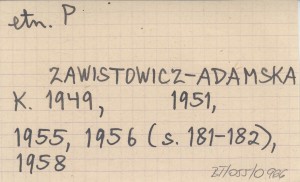 etn. P.
ZAWISTOWICZ-ADAMSKA
K. 1949, 1951,
1955, 1956 (s. 181-182),
1958